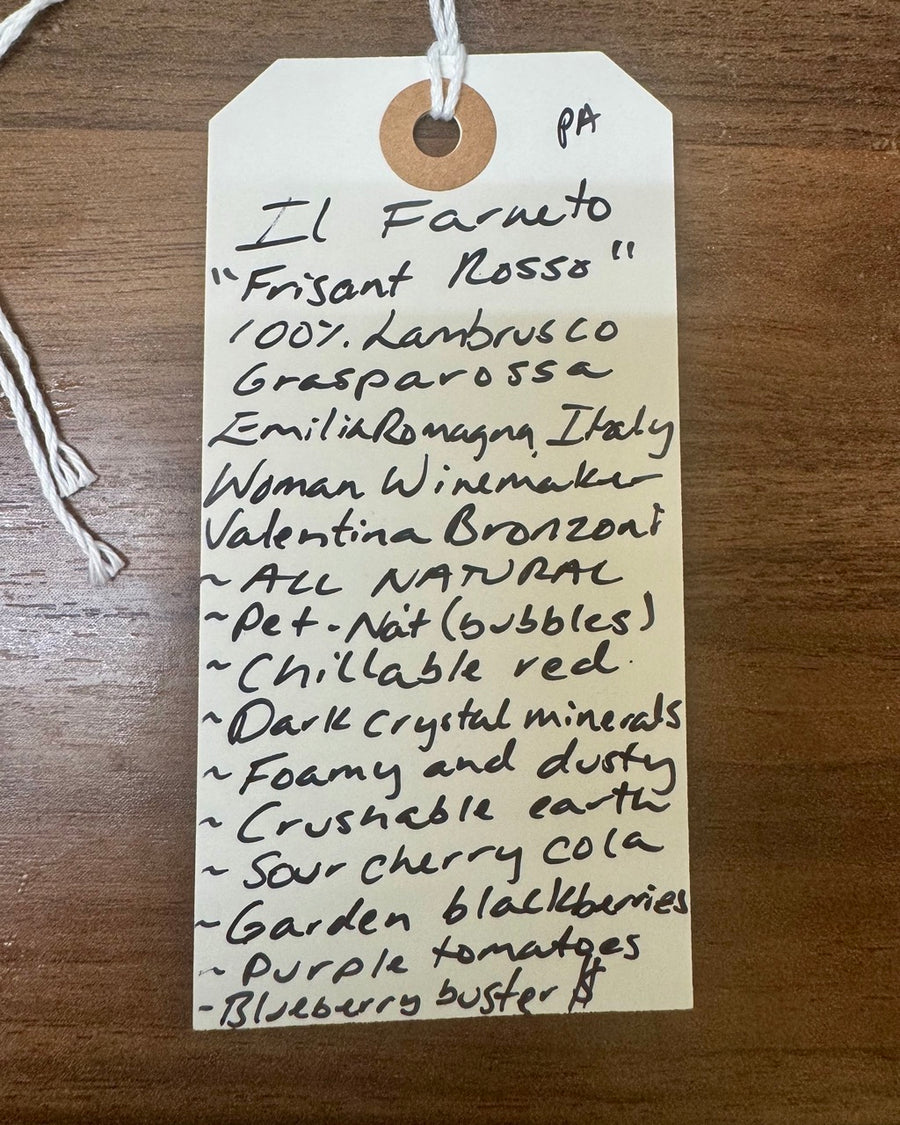 PA
Il Farneto
"Frisant Rosso"
100% Lambrusco
Grasparossa
Emilia Romagna, Italy
Woman Winemaker
Valentina Bronzoni
~ ALL NATURAL
~ Pet-Nat (bubbles)
~ Chillable red.
~ Dark crystal minerals
~ Foamy and dusty
~ Crushable earth
~ Sour cherry cola
~ Garden blackberries
~ Purple tomatoes
- Blueberry buster $